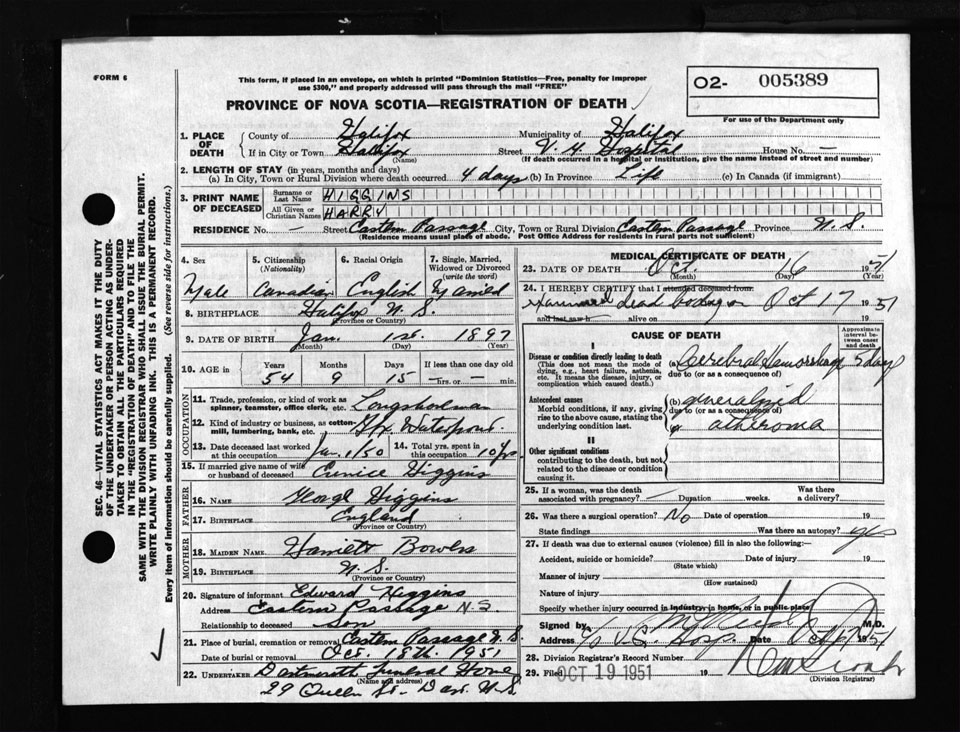 FORM 6
This form, if placed in an envelope, on which is printed "Dominion Statistics—Free, penalty for improper
use $300," and properly addressed will pass through the mail "FREE"
PROVINCE OF NOVA SCOTIA—REGISTRATION OF DEATH
02- 005389
For use of the Department only
SEC. 46—VITAL STATISTICS ACT MAKES IT THE DUTY
OF THE UNDERTAKER OR PERSON ACTING AS UNDER-
TAKER TO OBTAIN ALL THE PARTICULARS REQUIRED
IN THE "REGISTRATION OF DEATH" AND TO FILE THE
SAME WITH THE DIVISION REGISTRAR WHO SHALL ISSUE THE BURIAL PERMIT.
WRITE PLAINLY WITH UNFADING INK. THIS IS A PERMANENT RECORD.
Every item of information should be carefully supplied. (See reverse side for instructions.)
1. PLACE OF DEATH
County of Halifax Municipality of Halifax
If in City or Town Halifax Street V. G. Hospital House No. —
(Name) (If death occurred in a hospital or institution, give the name instead of street and number)
2. LENGTH OF STAY (in years, months and days)
(a) In City, Town or Rural Division where death occurred. 4 days (b) In Province Life (c) In Canada (if immigrant)
3. PRINT NAME OF DECEASED
Surname or Last Name HIGGINS
All Given or Christian Names HARRY
RESIDENCE No. — Street Eastern Passage City, Town or Rural Division Eastern Passage Province N.S.
(Residence means usual place of abode. Post Office Address for residents in rural parts not sufficient)
4. Sex 5. Citizenship (Nationality) 6. Racial Origin 7. Single, Married, Widowed or Divorced (write the word)
Male Canadian English Married
8. BIRTHPLACE Halifax N.S.
(Province or Country)
9. DATE OF BIRTH Jan. 1st. 1897
(Month) (Day) (Year)
10. AGE Years Months Days If less than one day old
54 9 15 —hrs. or —min.
OCCUPATION
11. Trade, profession, or kind of work as spinner, teamster, office clerk, etc. Longshoreman
12. Kind of industry or business, as cotton-mill, lumbering, bank, etc. Hfx Waterfront
13. Date deceased last worked at this occupation Jan. 1/50 14. Total yrs. spent in this occupation 10 yrs
15. If married give name of wife or husband of deceased Eunice Higgins
FATHER
16. NAME George Higgins
17. BIRTHPLACE England
(Province or Country)
MOTHER
18. MAIDEN NAME Harriett Bowes
19. BIRTHPLACE N.S.
(Province or Country)
20. Signature of informant Edward Higgins
Address Eastern Passage N.S.
Relationship to deceased Son
21. Place of burial, cremation or removal Eastern Passage N.S.
Date of burial or removal Oct. 18th. 1951
22. UNDERTAKER Dartmouth Funeral Home
(Name and address)
29 Queen St. Dart. N.S.
MEDICAL CERTIFICATE OF DEATH
23. DATE OF DEATH Oct. 16 1951
(Month) (Day) (Year)
24. I HEREBY CERTIFY that I attended deceased from
examined dead body on Oct 17 1951
and last saw h alive on 19
CAUSE OF DEATH
Approximate interval between onset and death
I
Disease or condition directly leading to death
(This does not mean the mode of dying, e.g., heart failure, asthenia, etc. It means the disease, injury, or complication which caused death.)
(a) Cerebral Hemorrhage 5 days
due to (or as a consequence of)
Antecedent causes
Morbid conditions, if any, giving rise to the above cause, stating the underlying condition last.
(b) generalized
due to (or as a consequence of)
atheroma
II
Other significant conditions
contributing to the death, but not related to the disease or condition causing it.
25. If a woman, was the death associated with pregnancy? — Duration weeks. Was there a delivery?
26. Was there a surgical operation? No Date of operation 19
State findings Was there an autopsy? yes
27. If death was due to external causes (violence) fill in also the following:—
Accident, suicide or homicide? Date of injury 19
(State which)
Manner of injury
(How sustained)
Nature of injury
Specify whether injury occurred in industry, in home, or in public place
Signed by M.D.
Address c/o V.G. Hosp. Date Oct 51
28. Division Registrar's Record Number
29. Filed OCT 19 1951 19
(Division Registrar)